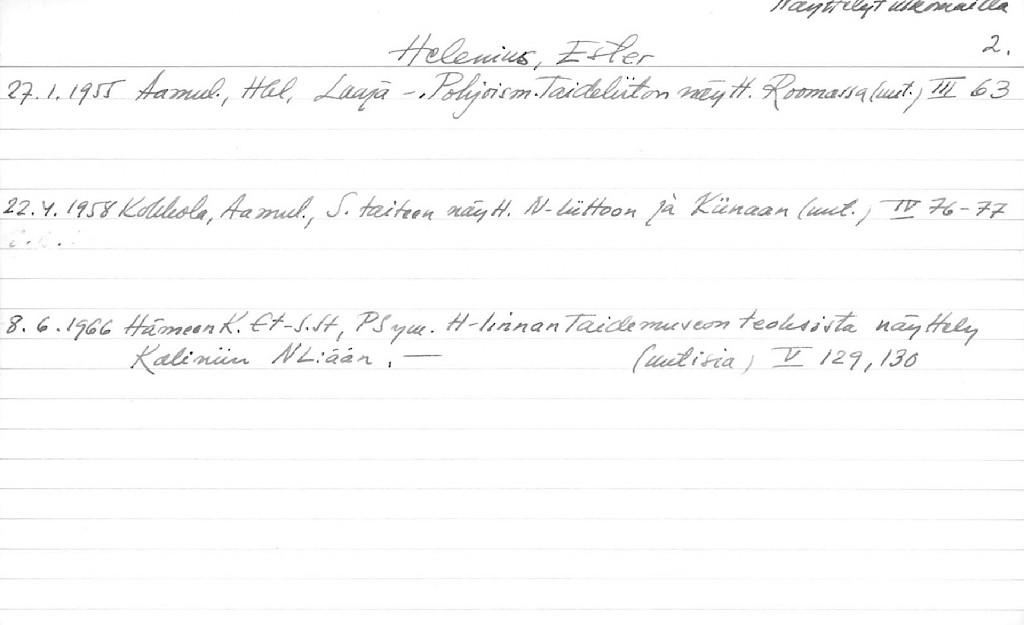 Näyttelyt ulkomailla
2.
Helenius, Ester
27.1.1955 Aamul., Hbl, Laaja - Pohjoism. Taideliiton näytt. Roomassa (uut.) III 63
22.4.1958 Kokkola, Aamul., S. taiteen näytt. N-liittoon ja Kiinaan (uut.) IV 76-77
8.6.1966 Hämeen K. Et-S.St, PS ym. H-linnan Taidemuseon teoksista näyttely
Kaliniin NL:ään. — (uutisia) V 129, 130